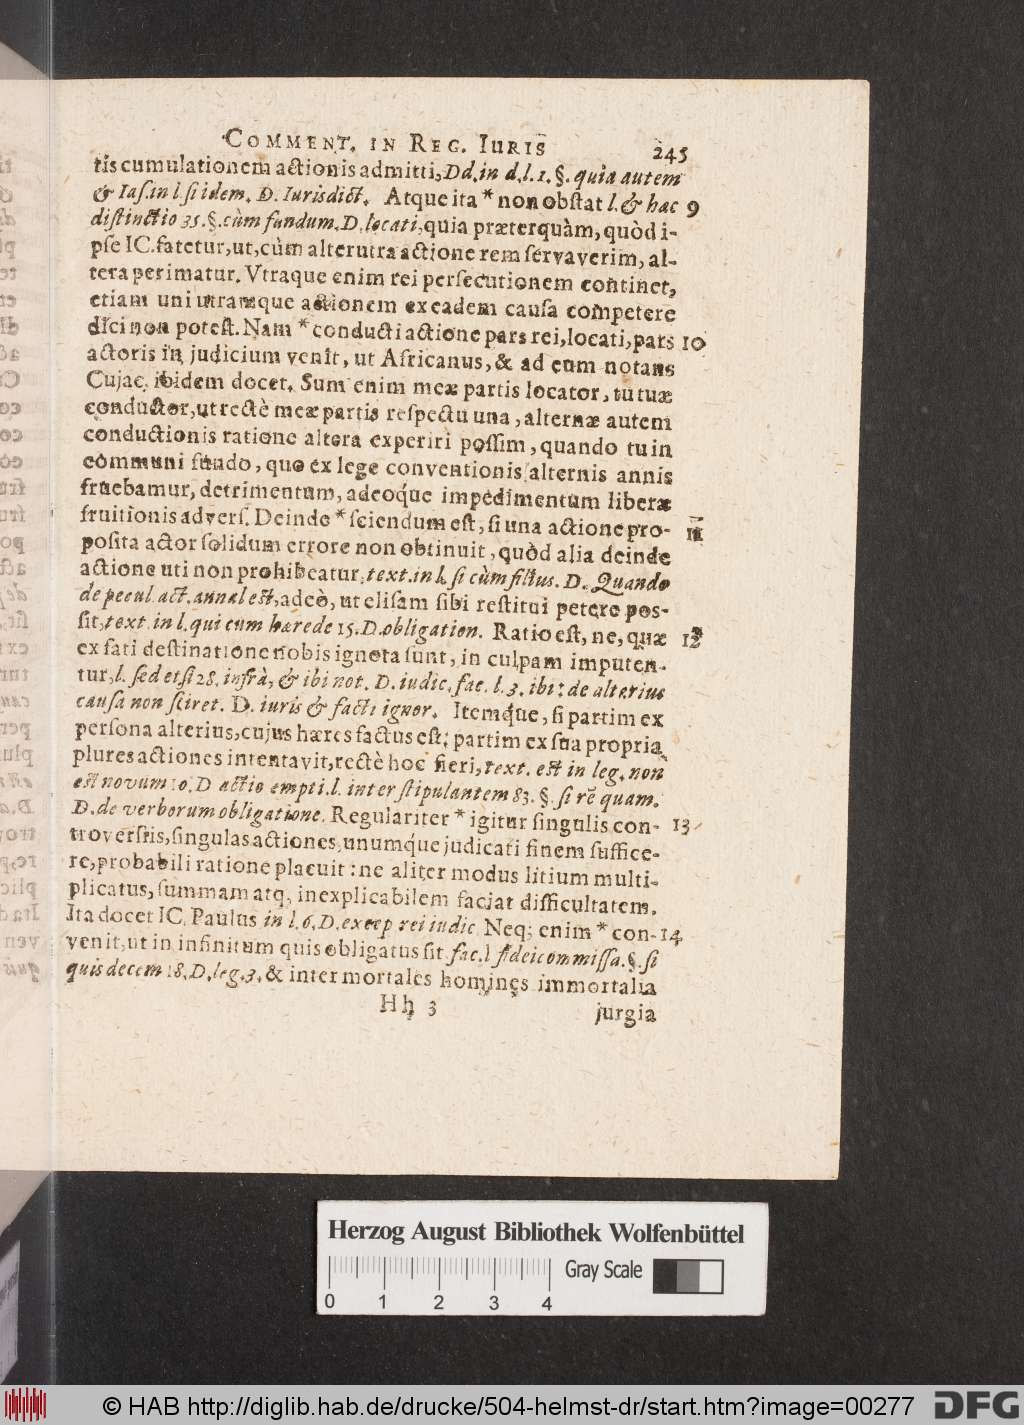 COMMENT. IN REG. IURIS 245
tis cumulationem actionis admitti, Dd. in d. l. 1. §. quia autem
& Ias. in l. si idem. D. Iurisdict. Atque ita * non obstat l. & hac 9
distinctio 35. §. cùm fundum. D. locati, quia præterquàm, quòd i-
pse IC. fatetur, ut, cùm alterutra actione rem servaverim, al-
tera perimatur. Vtraque enim rei persecutionem continet,
etiam uni utramque actionem ex eadem causa competere
dici non potest. Nam * conducti actione pars rei, locati, pars 10
actoris in judicium venit, ut Africanus, & ad eum notans
Cujac. ibidem docet. Sum enim meæ partis locator, tu tuæ
conductor, ut rectè meæ partis respectu una, alternæ autem
conductionis ratione altera experiri possim, quando tu in
communi fundo, quo ex lege conventionis alternis annis
fruebamur, detrimentum, adeoq́ue impedimentum liberæ
fruitionis advers. Deinde * sciendum est, si una actione pro- 11
posita actor solidum errore non obtinuit, quòd alia deinde
actione uti non prohibeatur, text. in l. si cùm filius. D. Quando
de pecul. act. annal est, adeò, ut elisam sibi restitui petere pos-
sit, text. in l. qui cum hærede 15. D. obligation. Ratio est, ne, quæ 12
ex fati destinatione nobis ignota sunt, in culpam imputen-
tur, l. sed etsi 28. infrà, & ibi not. D. iudic. fac. l. 3. ibi: de alterius
causa non sciret. D. iuris & facti ignor. Itemq́ue, si partim ex
persona alterius, cujus hæres factus est; partim ex sua propria
plures actiones intentavit, rectè hoc fieri, text. est in leg. non
est novum 10. D actio empti. l. inter stipulantem 83. §. si rẽ quam.
D. de verborum obligatione. Regulariter * igitur singulis con- 13
troversiis, singulas actiones, unumq́ue judicati finem suffice-
re, probabili ratione placuit: ne aliter modus litium multi-
plicatus, summam atq, inexplicabilem faciat difficultatem.
Ita docet IC. Paulus in l. 6. D. excep rei iudic Neq; enim * con- 14
venit, ut in infinitum quis obligatus sit fac. l fideicommissa. §. si
quis decem 18. D. leg. 3. & inter mortales homines immortalia
Hh 3 jurgia
Herzog August Bibliothek Wolfenbüttel
Gray Scale
0 1 2 3 4
© HAB http://diglib.hab.de/drucke/504-helmst-dr/start.htm?image=00277 DFG